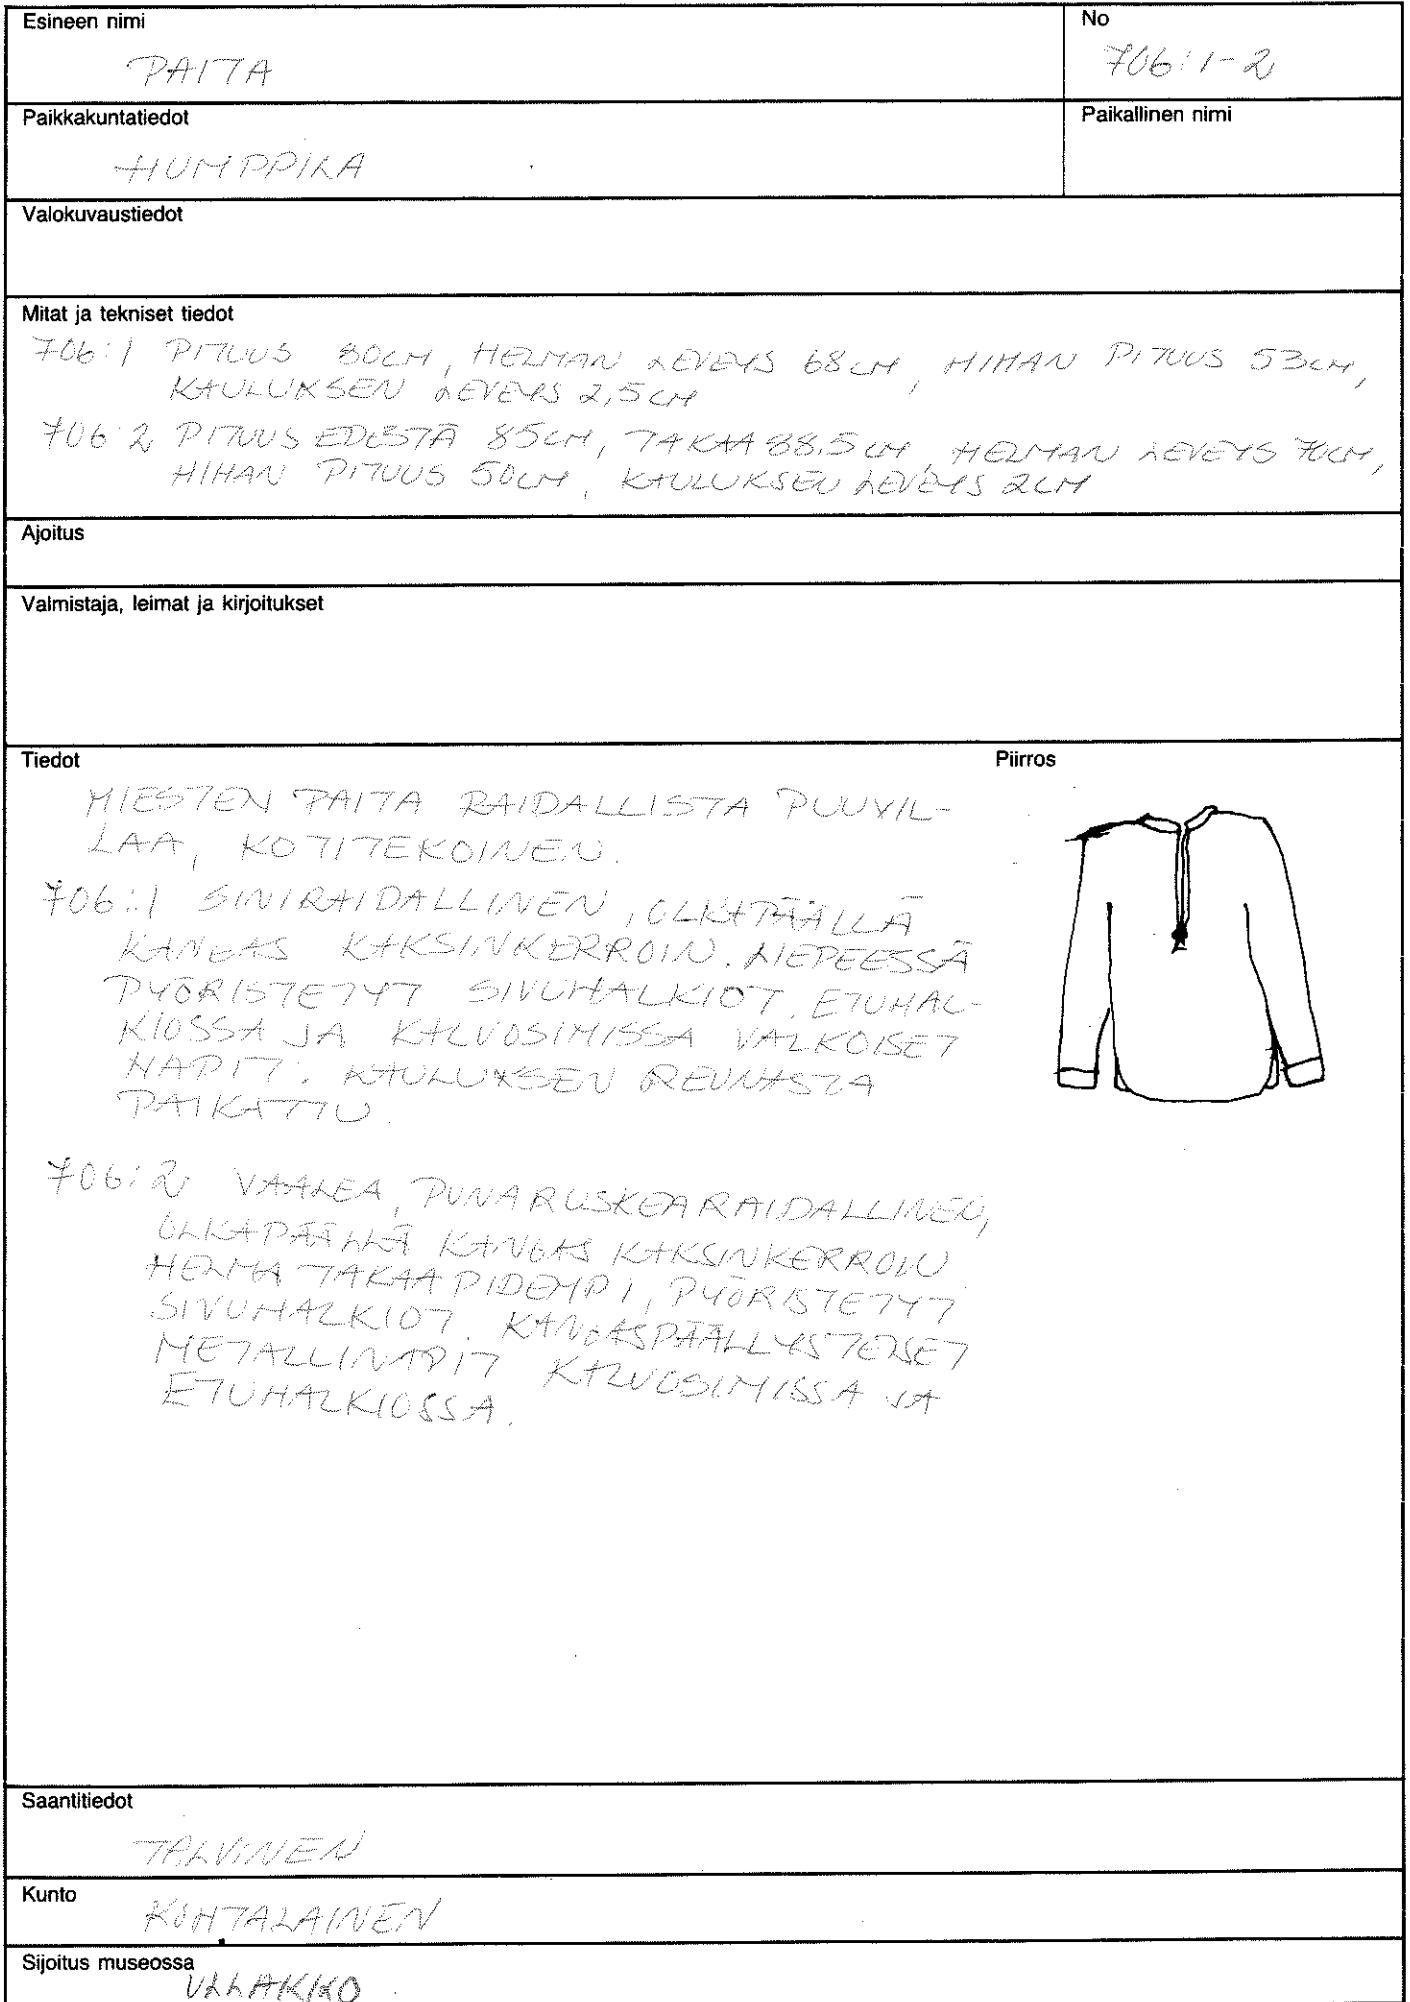 Esineen nimi
PAITA
No
706:1-2
Paikkakuntatiedot
HUMPPILA
Paikallinen nimi
Valokuvaustiedot
Mitat ja tekniset tiedot
706:1 PITUUS 80CM, HELMAN LEVEYS 68CM, HIHAN PITUUS 53CM,
KAULUKSEN LEVEYS 2,5CM
706:2 PITUUS EDESTÄ 85CM, TAKAA 88,5CM, HELMAN LEVEYS 70CM,
HIHAN PITUUS 50CM, KAULUKSEN LEVEYS 2CM
Ajoitus
Valmistaja, leimat ja kirjoitukset
Tiedot
Piirros
MIESTEN PAITA RAIDALLISTA PUUVIL-
LAA, KOTITEKOINEN.
706:1 SINIRAIDALLINEN, OLKAPÄÄLLÄ
KANGAS KAKSINKERROIN. LIEPEESSÄ
PYÖRISTETYT SIVUHALKIOT. ETUHAL-
KIOSSA JA KALVOSIMISSA VALKOISET
NAPIT. KAULUKSEN REUNASTA
PAIKATTU.
706:2 VAALEA, PUNARUSKEARAIDALLINEN,
OLKAPÄÄLLÄ KANGAS KAKSINKERROIN.
HELMA TAKAA PIDEMPI, PYÖRISTETYT
SIVUHALKIOT. KANGASPÄÄLLYSTEISET
METALLINAPIT KALVOSIMISSA JA
ETUHALKIOSSA.
Saantitiedot
TALVINEN
Kunto
KOHTALAINEN
Sijoitus museossa
ULLAKKO